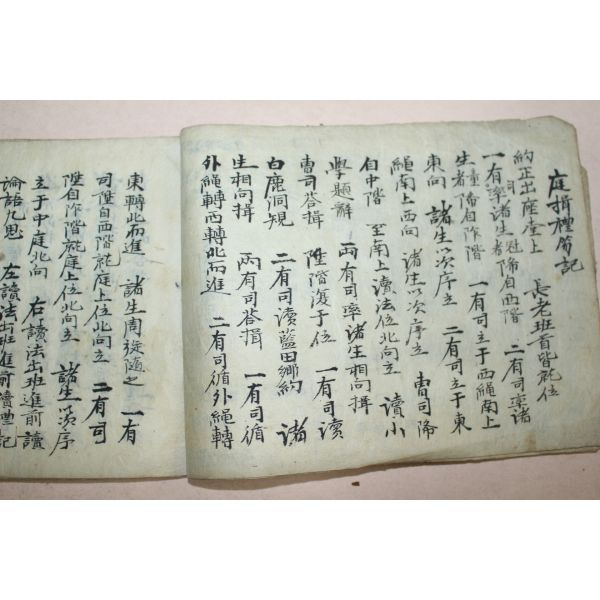 庭揖禮笏記
約正出座堂上 長老班首皆就位
一有司率諸生冠者降自西階 二有司率諸
生童者降自阼階 一有司立于西繩南上
東向 諸生以次序立 二有司立于東
繩南上西向 諸生以次序立 曹司降
自中階 至南上讀法位北向立 讀小
學題辭 兩有司率諸生相向揖
曹司答揖 陞階復于位 一有司讀
白鹿洞規 二有司讀藍田鄉約 諸
生相向揖 兩有司答揖 一有司循
外繩轉西轉北而進 二有司循外繩轉
東轉北而進 諸生周旋隨之 一有
司陞自西階就庭上位北向立 二有司
陞自阼階就庭上位北向立 諸生以次序
立于中庭北向 右讀法出班進前讀
論語九思 左讀法出班進前讀禮記